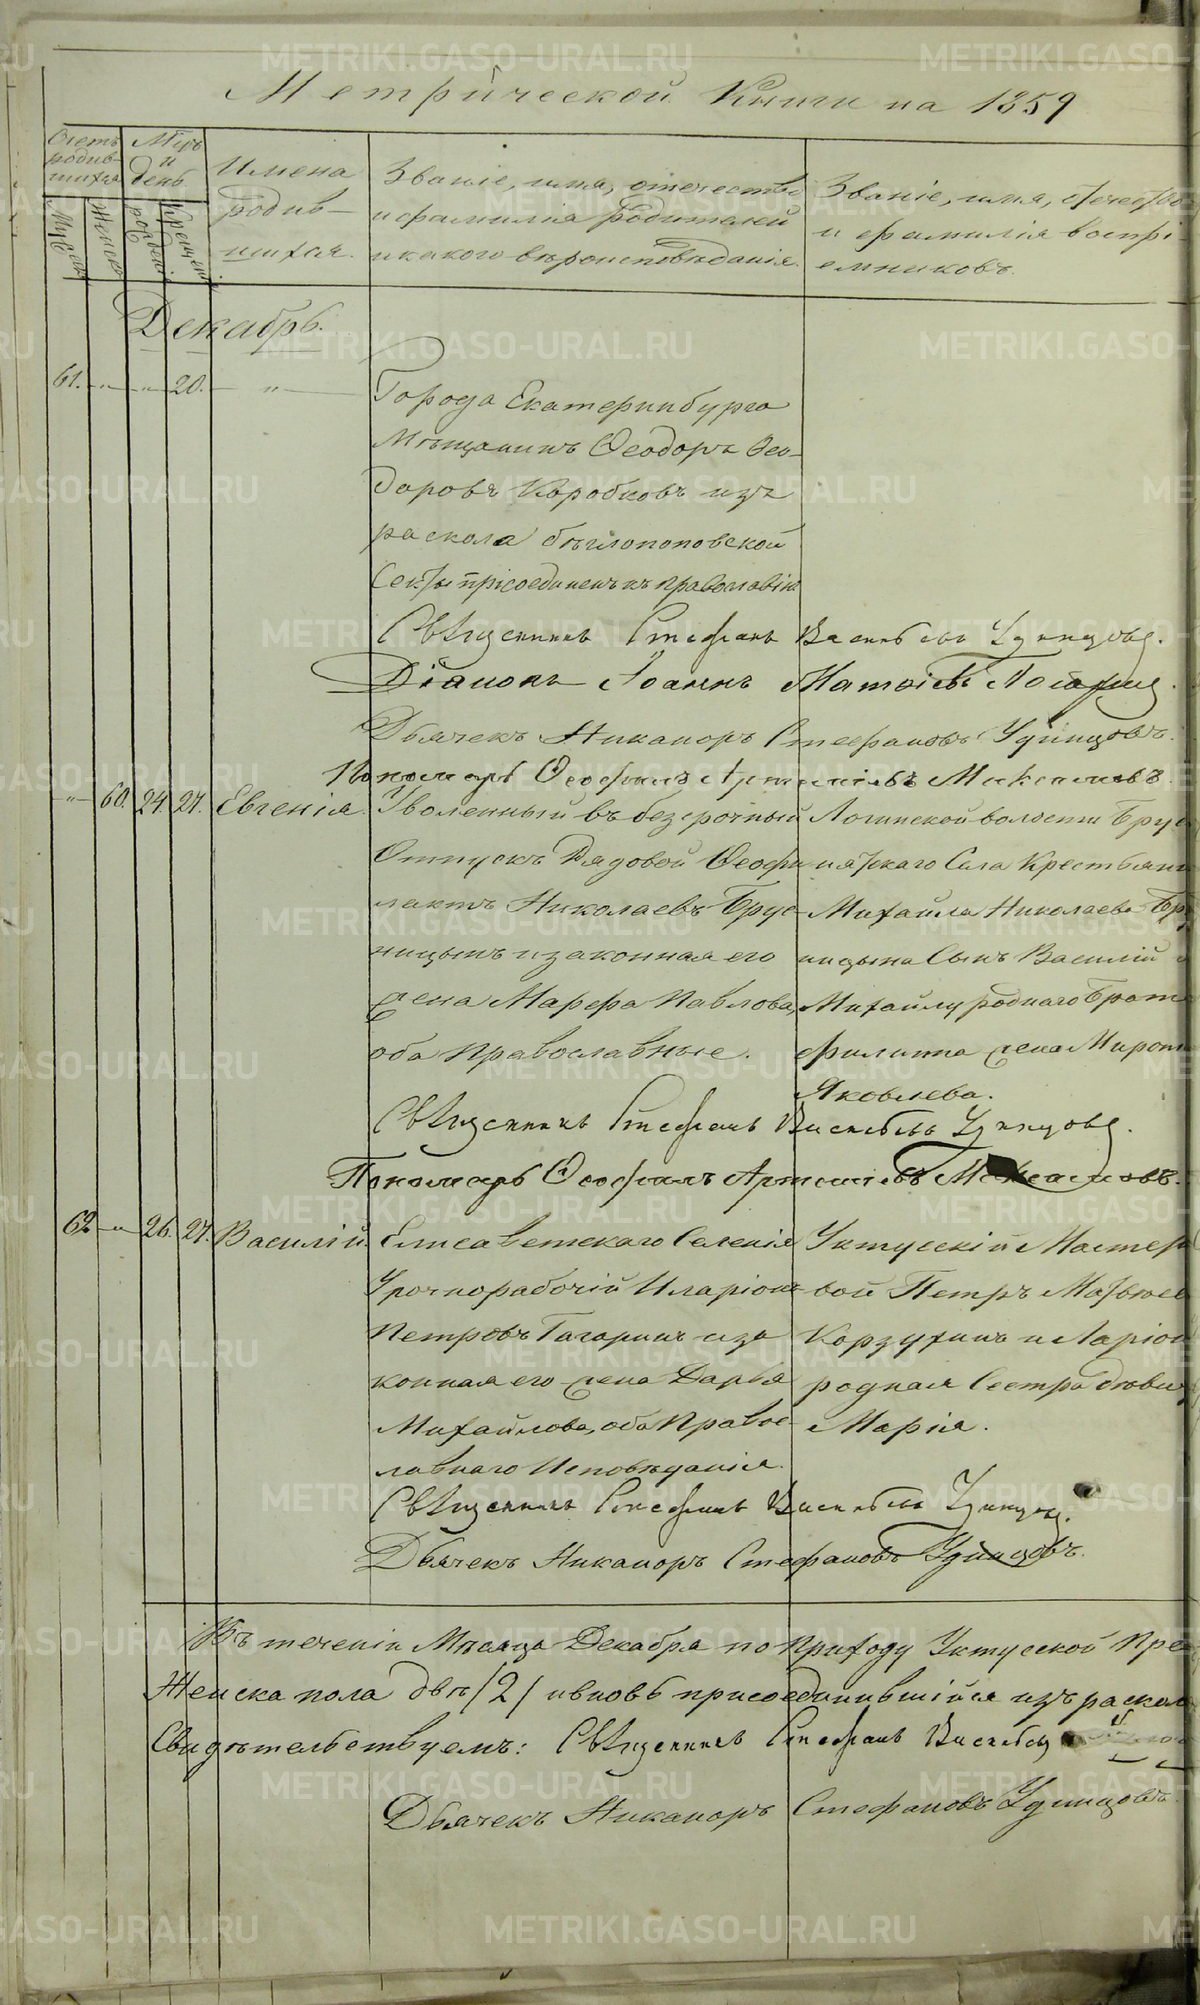 Метрической Книги на 1859
Счетъ родив-шихся
Мужеск
Женск
Мѣс. и день
рожденія
крещенія
Имена родив-шихся.
Званіе, имя, отечество
и фамилія родителей
и какого вѣроисповѣданія.
Званіе, имя, отечество
и фамилія воспрі-
емниковъ.
Декабрь.
61. „ „ 20. „
Города Екатеринбурга
Мѣщанинъ Ѳеодоръ Ѳео-
доровъ Коробковъ изъ
раскола бѣглопоповской
Секты присоединенъ къ православію
Священникъ Стефанъ Васильевъ Удинцовъ.
Діаконъ Іоаннъ
Дьячекъ Никаноръ Стефановъ Удинцовъ.
Пономарь Ѳеофилъ Артемьевъ
„ 60. 24. 27. Евгенія.
Уволенный въ безсрочный
Отпускъ Рядовой Ѳеофи-
лактъ Николаевъ Брус-
ницынъ и законная его
жена Марфа Павлова,
оба Православные.
Логинской волости
Села Крестьянина
Михайла Николаева
ницына Сынъ Василій и
Михайлу роднаго Брата
Филиппа жена
Яковлева.
Священникъ Стефанъ Васильевъ Удинцовъ.
Пономарь Ѳеофилъ Артемьевъ
62. „ 26. 27. Василій.
Елисаветскаго Селенія
Урочнорабочій Иларіонъ
Петровъ Гагаринъ и за-
конная его жена Дарья
Михайлова, оба Право-
славнаго Исповѣданія.
Уктусскій Мастеро-
вой Петръ Матвеев
Корзухинъ и Ларіона
родная Сестра девица
Марія.
Священникъ Стефанъ Васильевъ Удинцовъ.
Дьячекъ Никаноръ Стефановъ Удинцовъ.
Въ теченіи Мѣсяца Декабря по Приходу Уктусской
Женска пола двѣ /2/ и вновь присоединившійся изъ раскола
Свидѣтельствуемъ: Священникъ Стефанъ Васильевъ
Дьячекъ Никаноръ Стефановъ Удинцовъ.
METRIKI.GASO-URAL.RU